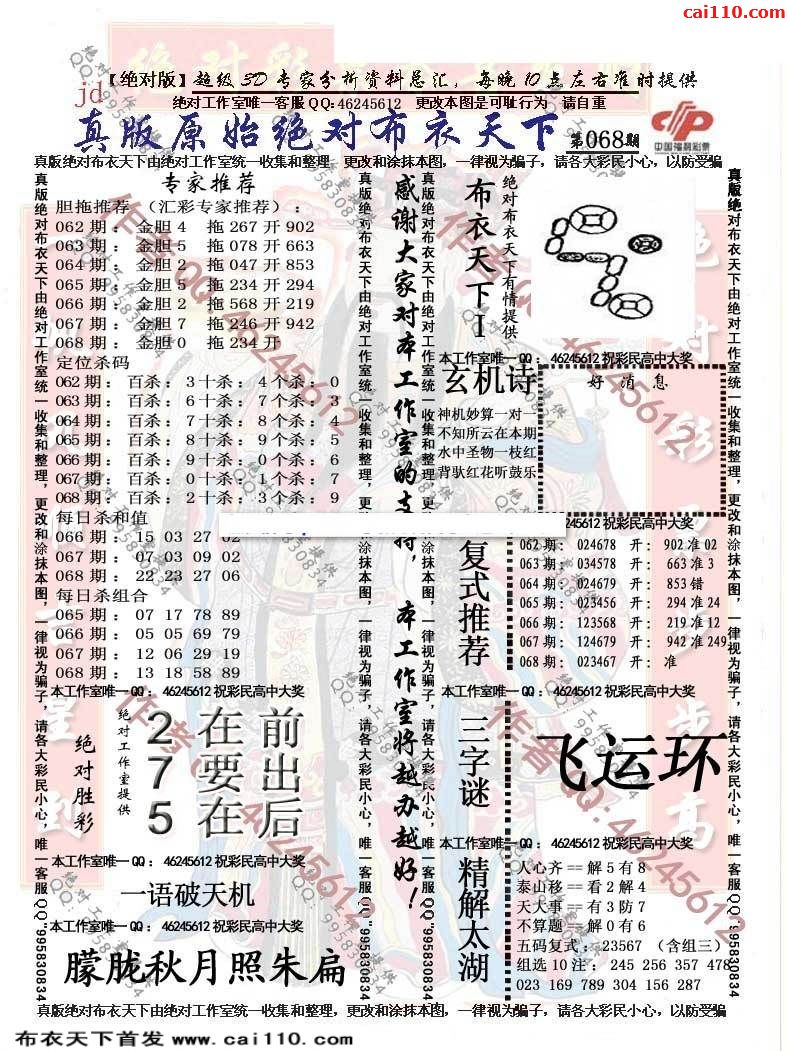 cai110.com
【绝对版】超级3D专家分析资料总汇，每晚10点左右准时提供
jd
绝对工作室唯一客服QQ:46245612 更改本图是可耻行为 请自重
真版原始绝对布衣天下 第068期
中国福利彩票
真版绝对布衣天下由绝对工作室统一收集和整理，更改和涂抹本图，一律视为骗子，请各大彩民小心，以防受骗
专家推荐
胆拖推荐 （汇彩专家推荐）：
062期：金胆4 拖267开902
063期：金胆5 拖078开663
064期：金胆2 拖047开853
065期：金胆5 拖234开294
066期：金胆2 拖568开219
067期：金胆7 拖246开942
068期：金胆0 拖234开
定位杀码
062期：百杀：3十杀：4个杀：0
063期：百杀：6十杀：7个杀：3
064期：百杀：7十杀：8个杀：4
065期：百杀：8十杀：9个杀：5
066期：百杀：9十杀：0个杀：6
067期：百杀：0十杀：1个杀：7
068期：百杀：2十杀：3个杀：9
每日杀和值
066期：15 03 27 02
067期：07 03 09 02
068期：22 23 27 06
每日杀组合
065期：07 17 78 89
066期：05 05 69 79
067期：12 06 29 19
068期：13 18 58 89
本工作室唯一QQ：46245612祝彩民高中大奖
绝对胜彩
绝对工作室提供
2在前
7要出
5在后
本工作室唯一QQ：46245612祝彩民高中大奖
一语破天机
本工作室唯一QQ：46245612祝彩民高中大奖
朦胧秋月照朱扁
真版绝对布衣天下由绝对工作室统一收集和整理，更改和涂抹本图，一律视为骗子，请各大彩民小心，唯一客服QQ"995830834
感谢大家对本工作室的支持，本工作室将越办越好！
真版绝对布衣天下由绝对工作室统一收集和整理，更改和涂抹本图，一律视为骗子，请各大彩民小心，唯一客服QQ"995830834
布衣天下I
绝对布衣天下有情提供
本工作室唯一QQ：46245612祝彩民高中大奖
玄机诗
神机妙算一对一
不知所云在本期
水中圣物一枝红
背驮红花听鼓乐
好消息
46245612祝彩民高中大奖
复式推荐
062期：024678 开：902准02
063期：034578 开：663准3
064期：024679 开：853错
065期：023456 开：294准24
066期：123568 开：219准12
067期：124679 开：942准249
068期：023467 开：准
本工作室唯一QQ：46245612祝彩民高中大奖
三字谜
飞运环
本工作室唯一QQ：46245612祝彩民高中大奖
精解太湖
人心齐==解5有8
泰山移==看2解4
天大事==有3防7
不算题==解0有6
五码复式：23567（含组三）
组选10注：245 256 357 478
023 169 789 304 156 287
真版绝对布衣天下由绝对工作室统一收集和整理，更改和涂抹本图，一律视为骗子，请各大彩民小心，唯一客服QQ"995830834
真版绝对布衣天下由绝对工作室统一收集和整理，更改和涂抹本图，一律视为骗子，请各大彩民小心，以防受骗
布衣天下首发 www.cai110.com
作者QQ:46245612
绝对工作室提供
QQ:995830834